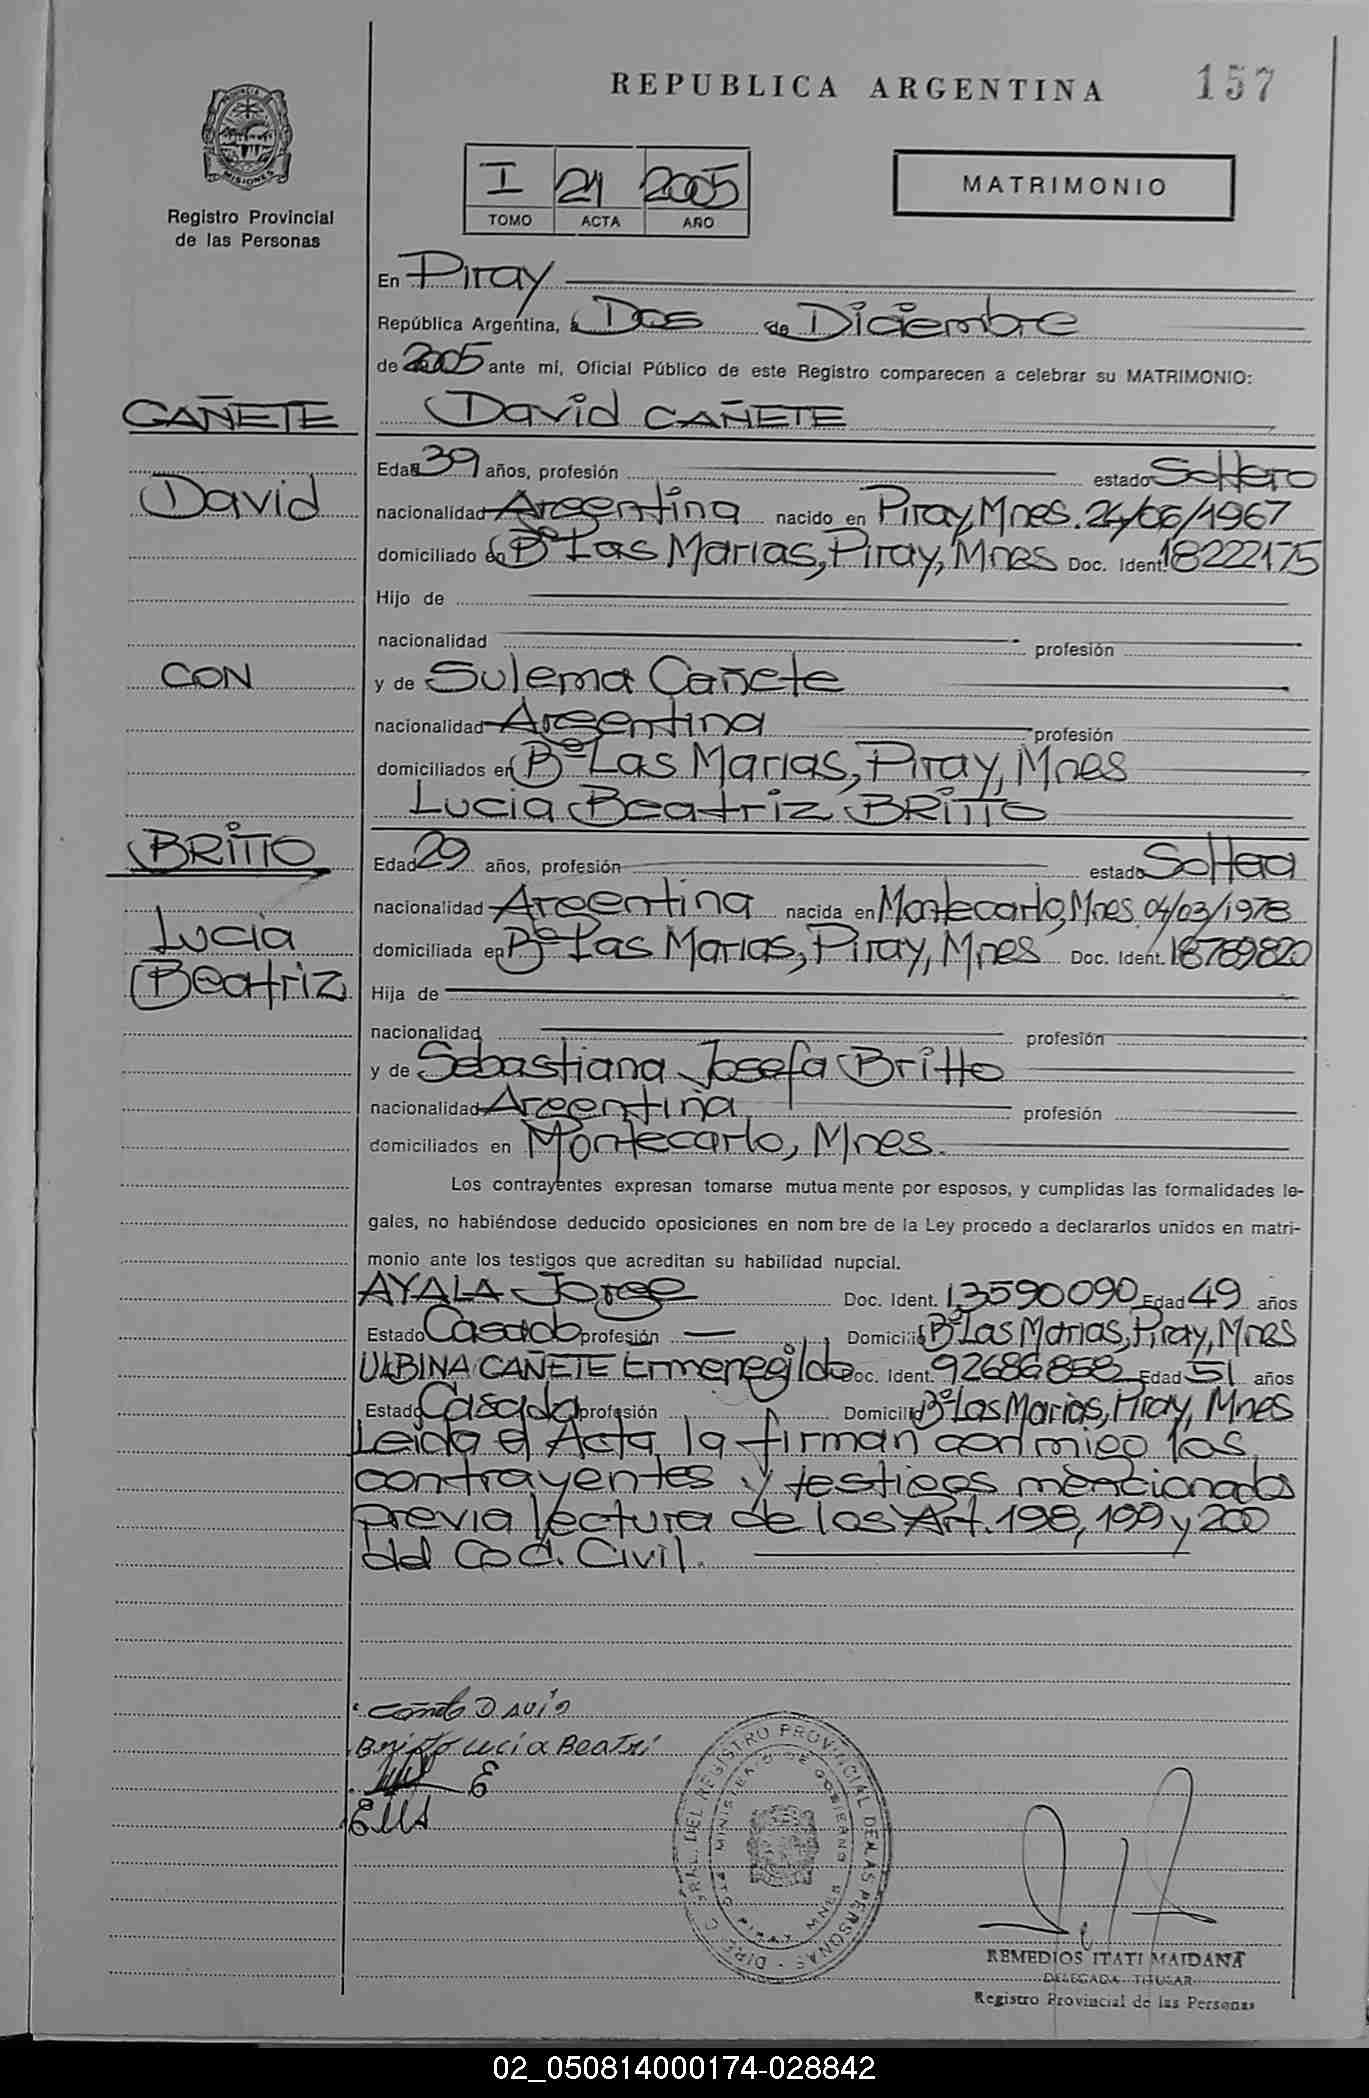 REPUBLICA ARGENTINA
157
PROVINCIA DE
MISIONES
Registro Provincial
de las Personas
I 21 2005
TOMO ACTA AÑO
MATRIMONIO
En Piray
República Argentina, a Dos de Diciembre
de 2005 ante mí, Oficial Público de este Registro comparecen a celebrar su MATRIMONIO:
CAÑETE
David CAÑETE
Edad 39 años, profesión estado Soltero
David
nacionalidad Argentina nacido en Piray, Mnes. 24/06/1967
domiciliado en Bº Las Marias, Piray, Mnes Doc. Ident. 18222175
Hijo de
nacionalidad profesión
CON
y de Sulema Cañete
nacionalidad Argentina profesión
domiciliados en Bº Las Marias, Piray, Mnes
Lucia Beatriz BRITTO
BRITTO
Edad 29 años, profesión estado Soltera
nacionalidad Argentina nacida en Montecarlo, Mnes. 04/03/1978
Lucia
domiciliada en Bº Las Marias, Piray, Mnes Doc. Ident. 18789820
Beatriz
Hija de
nacionalidad profesión
y de Sebastiana Josefa Britto
nacionalidad Argentina profesión
domiciliados en Montecarlo, Mnes.
Los contrayentes expresan tomarse mutua mente por esposos, y cumplidas las formalidades le-
gales, no habiéndose deducido oposiciones en nom bre de la Ley procedo a declararlos unidos en matri-
monio ante los testigos que acreditan su habilidad nupcial.
AYALA Jorge Doc. Ident. 13590090 Edad 49 años
Estado Casado profesión — Domicilio Bº Las Marias, Piray, Mnes
CAÑETE Ermenegildo Doc. Ident. Edad 51 años
Estado Casado profesión Domicilio Bº Las Marias, Piray, Mnes
Leida el Acta, la firman conmigo los
contrayentes y testigos mencionados
previa lectura de los Art. 198, 199 y 200
del Cod. Civil.
Cañete David
Britto Lucia Beatri
DIREC. GRAL. DEL REGISTRO PROVINCIAL DE LAS PERSONAS
MINISTERIO DE GOBIERNO
REMEDIOS ITATI MAIDANA
DELEGADA TITULAR
Registro Provincial de las Personas
02_050814000174-028842